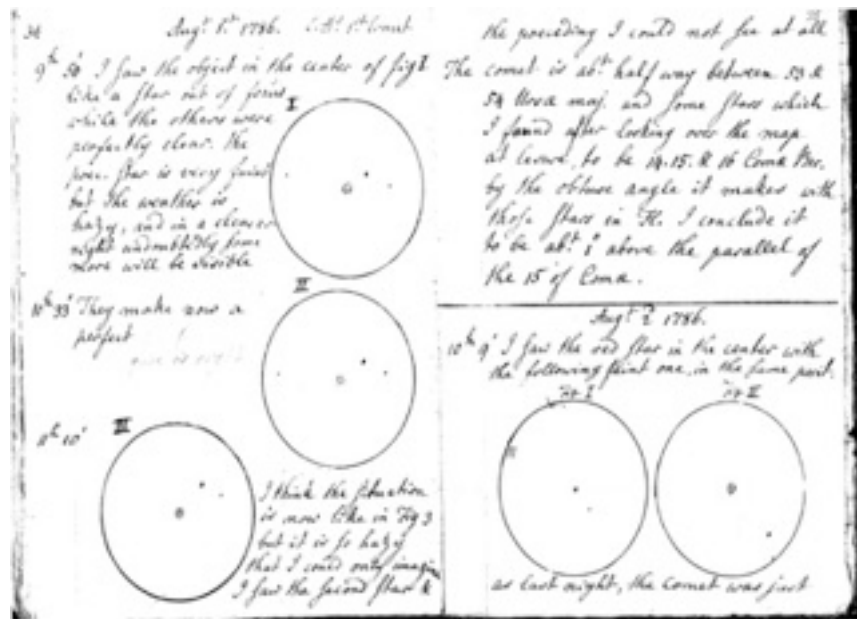 34
Augt. 1st. 1786. C. H. 1st. Comet
9h 50' I saw the object in the center of fig I
like a star out of focus
while the others were
perfectly clear. The
prec. star is very faint
but the weather is
hazy, and in a clearer
night undoubtedly some
more will be visible
I
II
10h 33' They make now a
perfect
III
11h 10'
I think the situation
is now like in Fig 3
but it is so hazy
that I could only imagine
I saw the second star &
the preceding I could not see at all
The comet is abt. half way between 53 &
54 Ursa maj. and some stars which
I found after looking over the map
at to be 14. 15. & 16 Coma Ber.
by the obtuse angle it makes with
those stars in I conclude it
to be abt. 1° above the parallel of
the 15 of Coma.
Augt. 2 1786.
10h 9' I saw the red star in the center with
the following faint one, in the same posit.
Fig I Fig II
as last night, the Comet was just